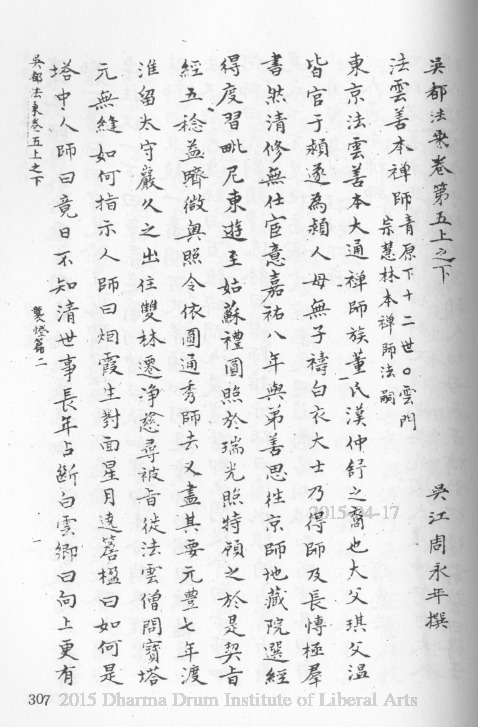 吳都法乘卷第五上之下
吳江周永年撰
法雲善本禪師青原下十二世〇雲門
宗慧林本禪師法嗣
東京法雲善本大通禪師族董氏漢仲舒之裔也大父琪父溫
皆官于頴遂為頴人母無子禱白衣大士乃得師及長慱極羣
書然清修無仕宦意嘉祐八年與弟善思徃京師地藏院選經
得度習毗尼東遊至姑蘇禮圓照於瑞光照特頋之於是契旨
經五稔益臍微奧照令依圓通秀師去又盡其要元豐七年渡
淮留太守巖久之出住雙林遷淨慈尋被旨徙法雲僧問寶塔
元無縫如何指示人師曰烟霞生對面星月遶簷楹曰如何是
塔中人師曰竟日不知清世事長年占斷白雲鄉曰向上更有
吳都法乘卷五上之下
襲燈篇二
一
307
2015-04-17
2015 Dharma Drum Institute of Liberal Arts